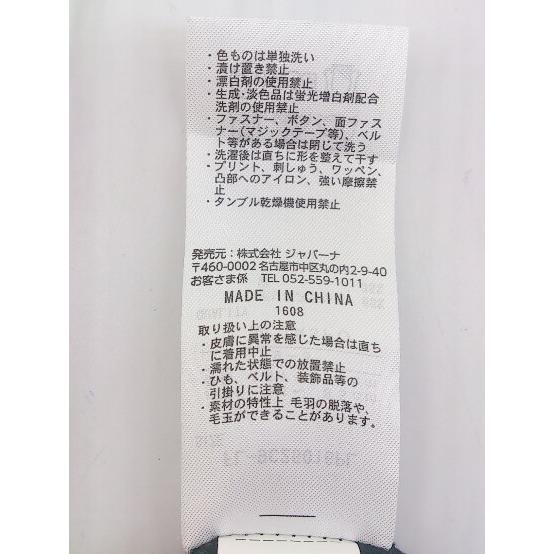 ・色ものは単独洗い
・漬け置き禁止
・漂白剤の使用禁止
・生成・淡色品は蛍光増白剤配合
洗剤の使用禁止
・ファスナー、ボタン、面ファス
ナー(マジックテープ等)、ベル
ト等がある場合は閉じて洗う
・洗濯後は直ちに形を整えて干す
・プリント、刺しゅう、ワッペン、
凸部へのアイロン、強い摩擦禁
止
・タンブル乾燥機使用禁止
発売元:株式会社 ジャパーナ
〒460-0002 名古屋市中区丸の内2-9-40
お客さま係 TEL 052-559-1011
MADE IN CHINA
1608
取り扱い上の注意
・皮膚に異常を感じた場合は直ち
に着用中止
・濡れた状態での放置禁止
・ひも、ベルト、装飾品等の
引掛りに注意
・素材の特性上 毛羽の脱落や、
毛玉ができることがあります。